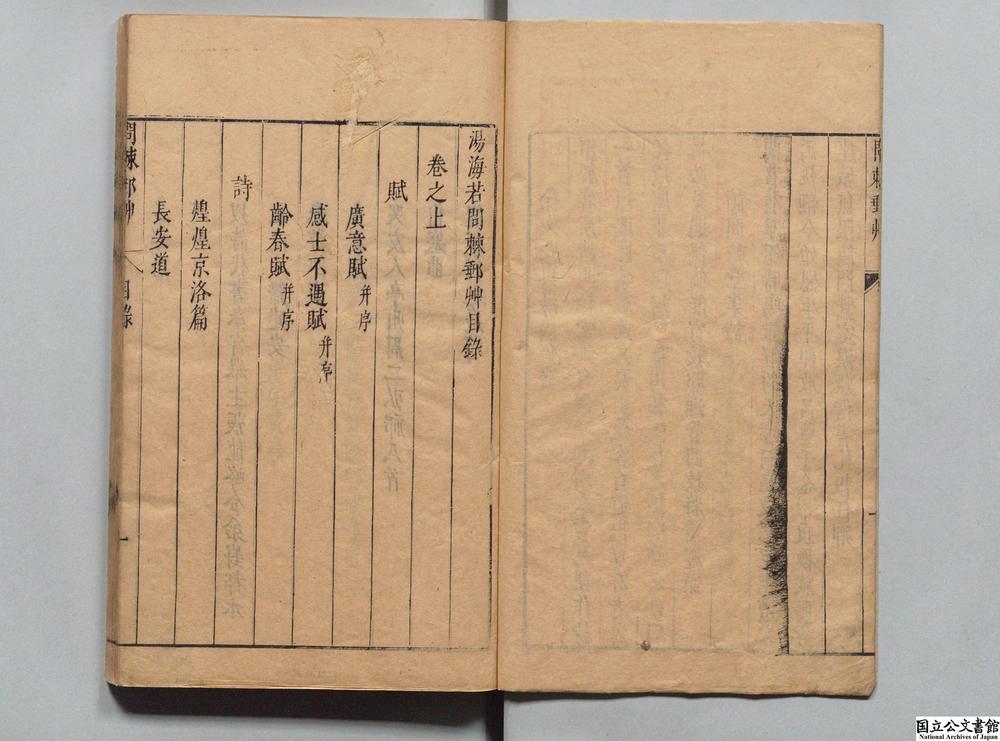 問棘郵艸
一
湯海若問棘郵艸目錄
卷之上
賦
廣意賦并序
感士不遇賦并序
齡春賦并序
詩
煌煌京洛篇
長安道
問棘郵艸
目錄
一
国立公文書館
National Archives of Japan